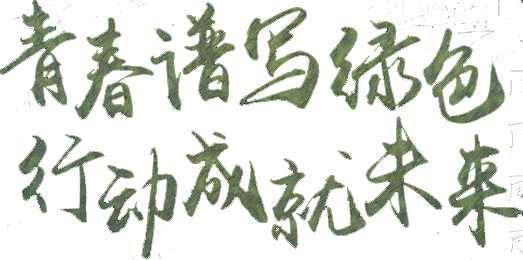 青春谱写绿色
行动成就未来